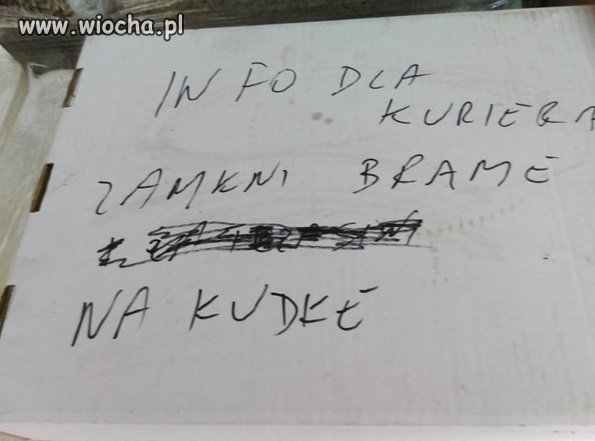 www.wiocha.pl
INFO DLA
KURIERA
ZAMKNI BRAME
NA KUDKE